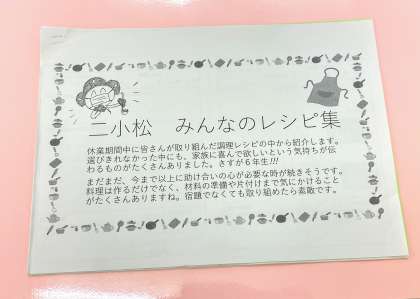 二小松　みんなのレシピ集
休業期間中に皆さんが取り組んだ調理レシピの中から紹介します。
選びきれなかった中にも、家族に喜んで欲しいという気持ちが伝
わるものがたくさんありました。さすが６年生!!!
まだまだ、今まで以上に助け合いの心が必要な時が続きそうです。
料理は作るだけでなく、材料の準備や片付けまで気にかけること
がたくさんありますね。宿題でなくても取り組めたら素敵です。